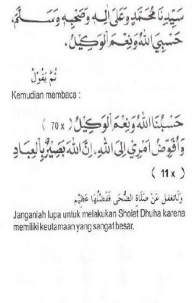 سَيِّدِنَا مُحَمَّدٍ وَعَلَى اٰلِهِ وَصَحْبِهِ وَسَلَّمَ،
حَسْبِيَ اللهُ وَنِعْمَ الْوَكِيْلُ.
ثُمَّ يَقُوْلُ
Kemudian membaca :
حَسْبُنَا اللهُ وَنِعْمَ الْوَكِيْلُ ( 70 x )
وَأُفَوِّضُ اَمْرِيْ اِلَى اللهِ. اِنَّ اللهَ بَصِيْرٌ بِالْعِبَادِ
( 11 x )
وَلَا تَغْفُلْ عَنْ صَلَاةِ الضُّحَى فَفَضْلُهَا عَظِيْمٌ
Janganlah lupa untuk melakukan Sholat Dhuha karena
memiliki keutamaan yang sangat besar.